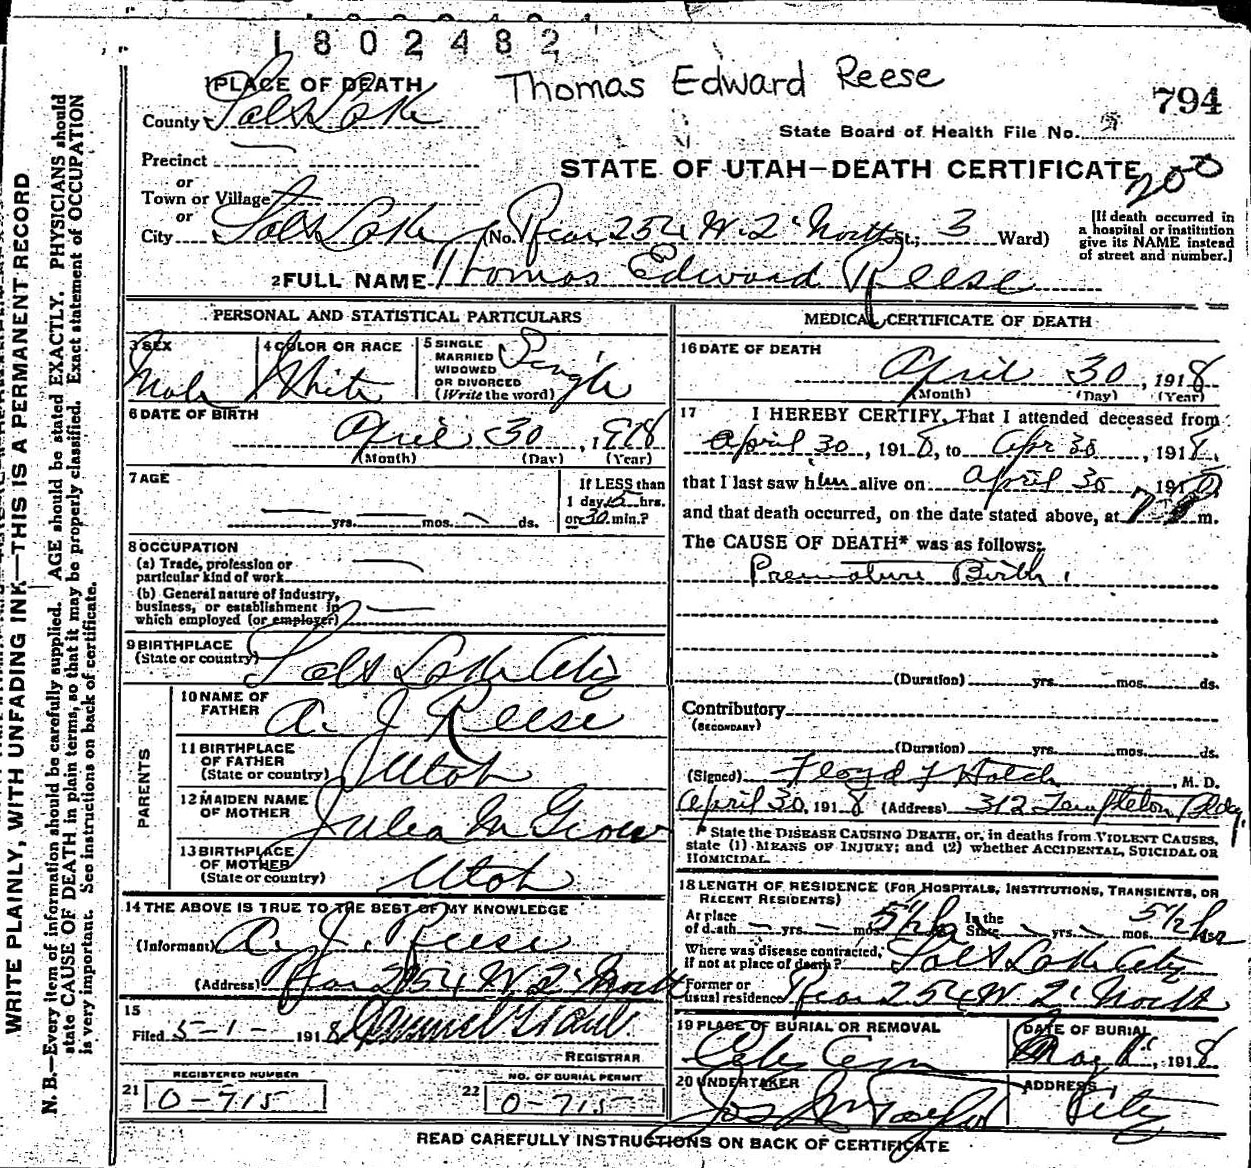 1802482
Thomas Edward Reese
794
1 PLACE OF DEATH
County Salt Lake
State Board of Health File No.
Precinct
or
STATE OF UTAH—DEATH CERTIFICATE
200
Town or Village
or
City Salt Lake (No. Rear 254 W. 2' North St.; 3 Ward)
[If death occurred in
a hospital or institution
give its NAME instead
of street and number.]
2 FULL NAME Thomas Edward Reese
PERSONAL AND STATISTICAL PARTICULARS
3 SEX
Male
4 COLOR OR RACE
White
5 SINGLE
MARRIED
WIDOWED
OR DIVORCED
(Write the word)
Single
6 DATE OF BIRTH
April 30, 1918
(Month) (Day) (Year)
7 AGE
yrs. mos. ds.
If LESS than
1 day 5 hrs.
or 30 min.?
8 OCCUPATION
(a) Trade, profession or
particular kind of work
(b) General nature of industry,
business, or establishment in
which employed (or employer)
9 BIRTHPLACE
(State or country)
Salt Lake City
PARENTS
10 NAME OF
FATHER
A. J. Reese
11 BIRTHPLACE
OF FATHER
(State or country)
Utah
12 MAIDEN NAME
OF MOTHER
Julia
13 BIRTHPLACE
OF MOTHER
(State or country)
Utah
14 THE ABOVE IS TRUE TO THE BEST OF MY KNOWLEDGE
(Informant) A. J. Reese
(Address) Rear 254 W 2' North
15
Filed 5-1- 1918
REGISTRAR
REGISTERED NUMBER
21 0-715
NO. OF BURIAL PERMIT
22 0-715
MEDICAL CERTIFICATE OF DEATH
16 DATE OF DEATH
April 30, 1918
(Month) (Day) (Year)
17 I HEREBY CERTIFY, That I attended deceased from
April 30, 1918, to Apr 30, 1918,
that I last saw him alive on April 30, 1918,
and that death occurred, on the date stated above, at 7 m.
The CAUSE OF DEATH* was as follows:
Premature Birth
(Duration) yrs. mos. ds.
Contributory
(SECONDARY)
(Duration) yrs. mos. ds.
(Signed) Floyd F Hatch, M. D.
April 30, 1918 (Address) 312 Templeton Bldg.
* State the DISEASE CAUSING DEATH, or, in deaths from VIOLENT CAUSES,
state (1) MEANS OF INJURY; and (2) whether ACCIDENTAL, SUICIDAL OR
HOMICIDAL.
18 LENGTH OF RESIDENCE (FOR HOSPITALS, INSTITUTIONS, TRANSIENTS, OR
RECENT RESIDENTS)
At place
of death yrs. mos. 5 1/2 hrs In the
State yrs. mos. 5 1/2 hrs
Where was disease contracted,
if not at place of death? Salt Lake City
Former or
usual residence Rear 254 W 2' North
19 PLACE OF BURIAL OR REMOVAL
City Cem
DATE OF BURIAL
May 1, 1918
20 UNDERTAKER
Jos Wm Taylor
ADDRESS
City
READ CAREFULLY INSTRUCTIONS ON BACK OF CERTIFICATE
WRITE PLAINLY, WITH UNFADING INK—THIS IS A PERMANENT RECORD
N. B.—Every item of information should be carefully supplied. AGE should be stated EXACTLY. PHYSICIANS should
state CAUSE OF DEATH in plain terms, so that it may be properly classified. Exact statement of OCCUPATION
is very important. See instructions on back of certificate.